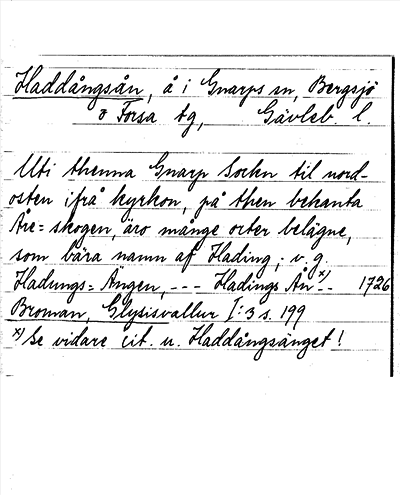 Haddångsån, å i Gnarps sn, Bergsjö
o Forsa tg, Gävleb. l.
Uti thenna Gnarp Sockn til nord-
osten ifrå kyrkon, på then bekanta
Åre=skogen, äro månge orter belägne,
som bära namn af Hading, v. g.
Hadungs=Ängen, --- Hadings Ån x) -- 1726
Broman, Glysisvallur I:3 s. 199
x) Se vidare cit. u. Haddångsänget!